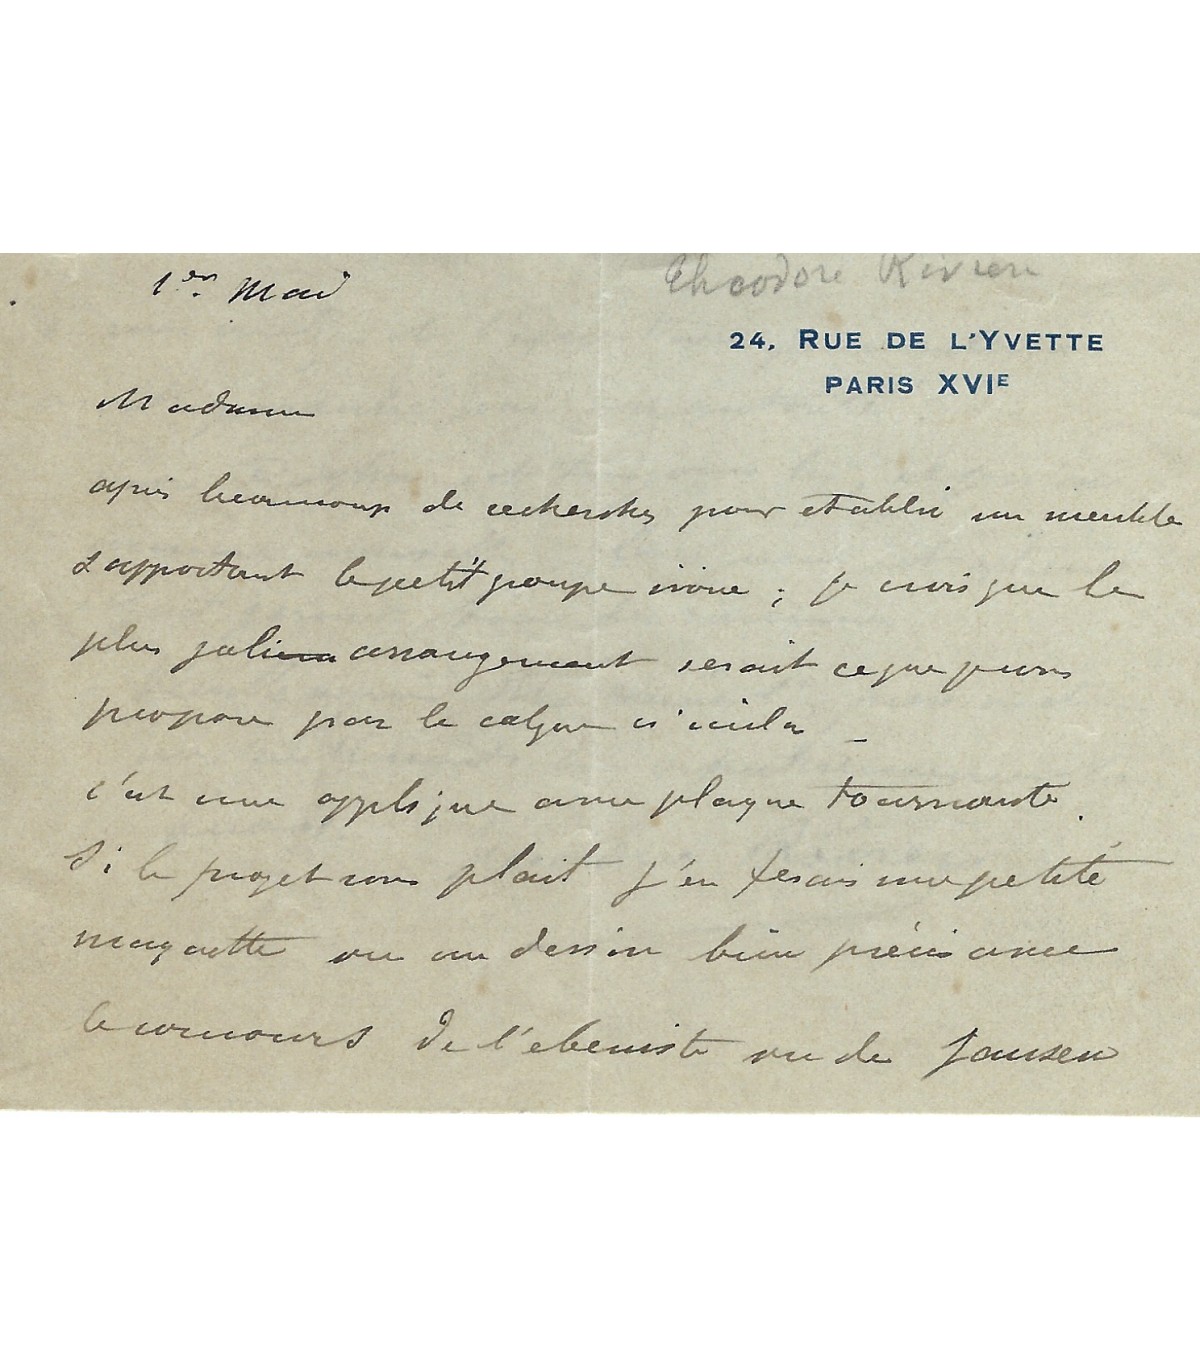 1er Mai
Theodore Riviere
24, RUE DE L'YVETTE
PARIS XVIE
Madame
après beaucoup de recherches pour etablir un meuble
supportant le petit groupe ivoire ; je crois que le
plus joli arrangement serait ce que je vous
propose par le calque ci inclu _
c'est une applique avec plaque tournante.
Si le projet vous plait j'en ferais une petite
maquette ou un dessin bien précis avec
le concours de l'ebeniste ou de Jansen